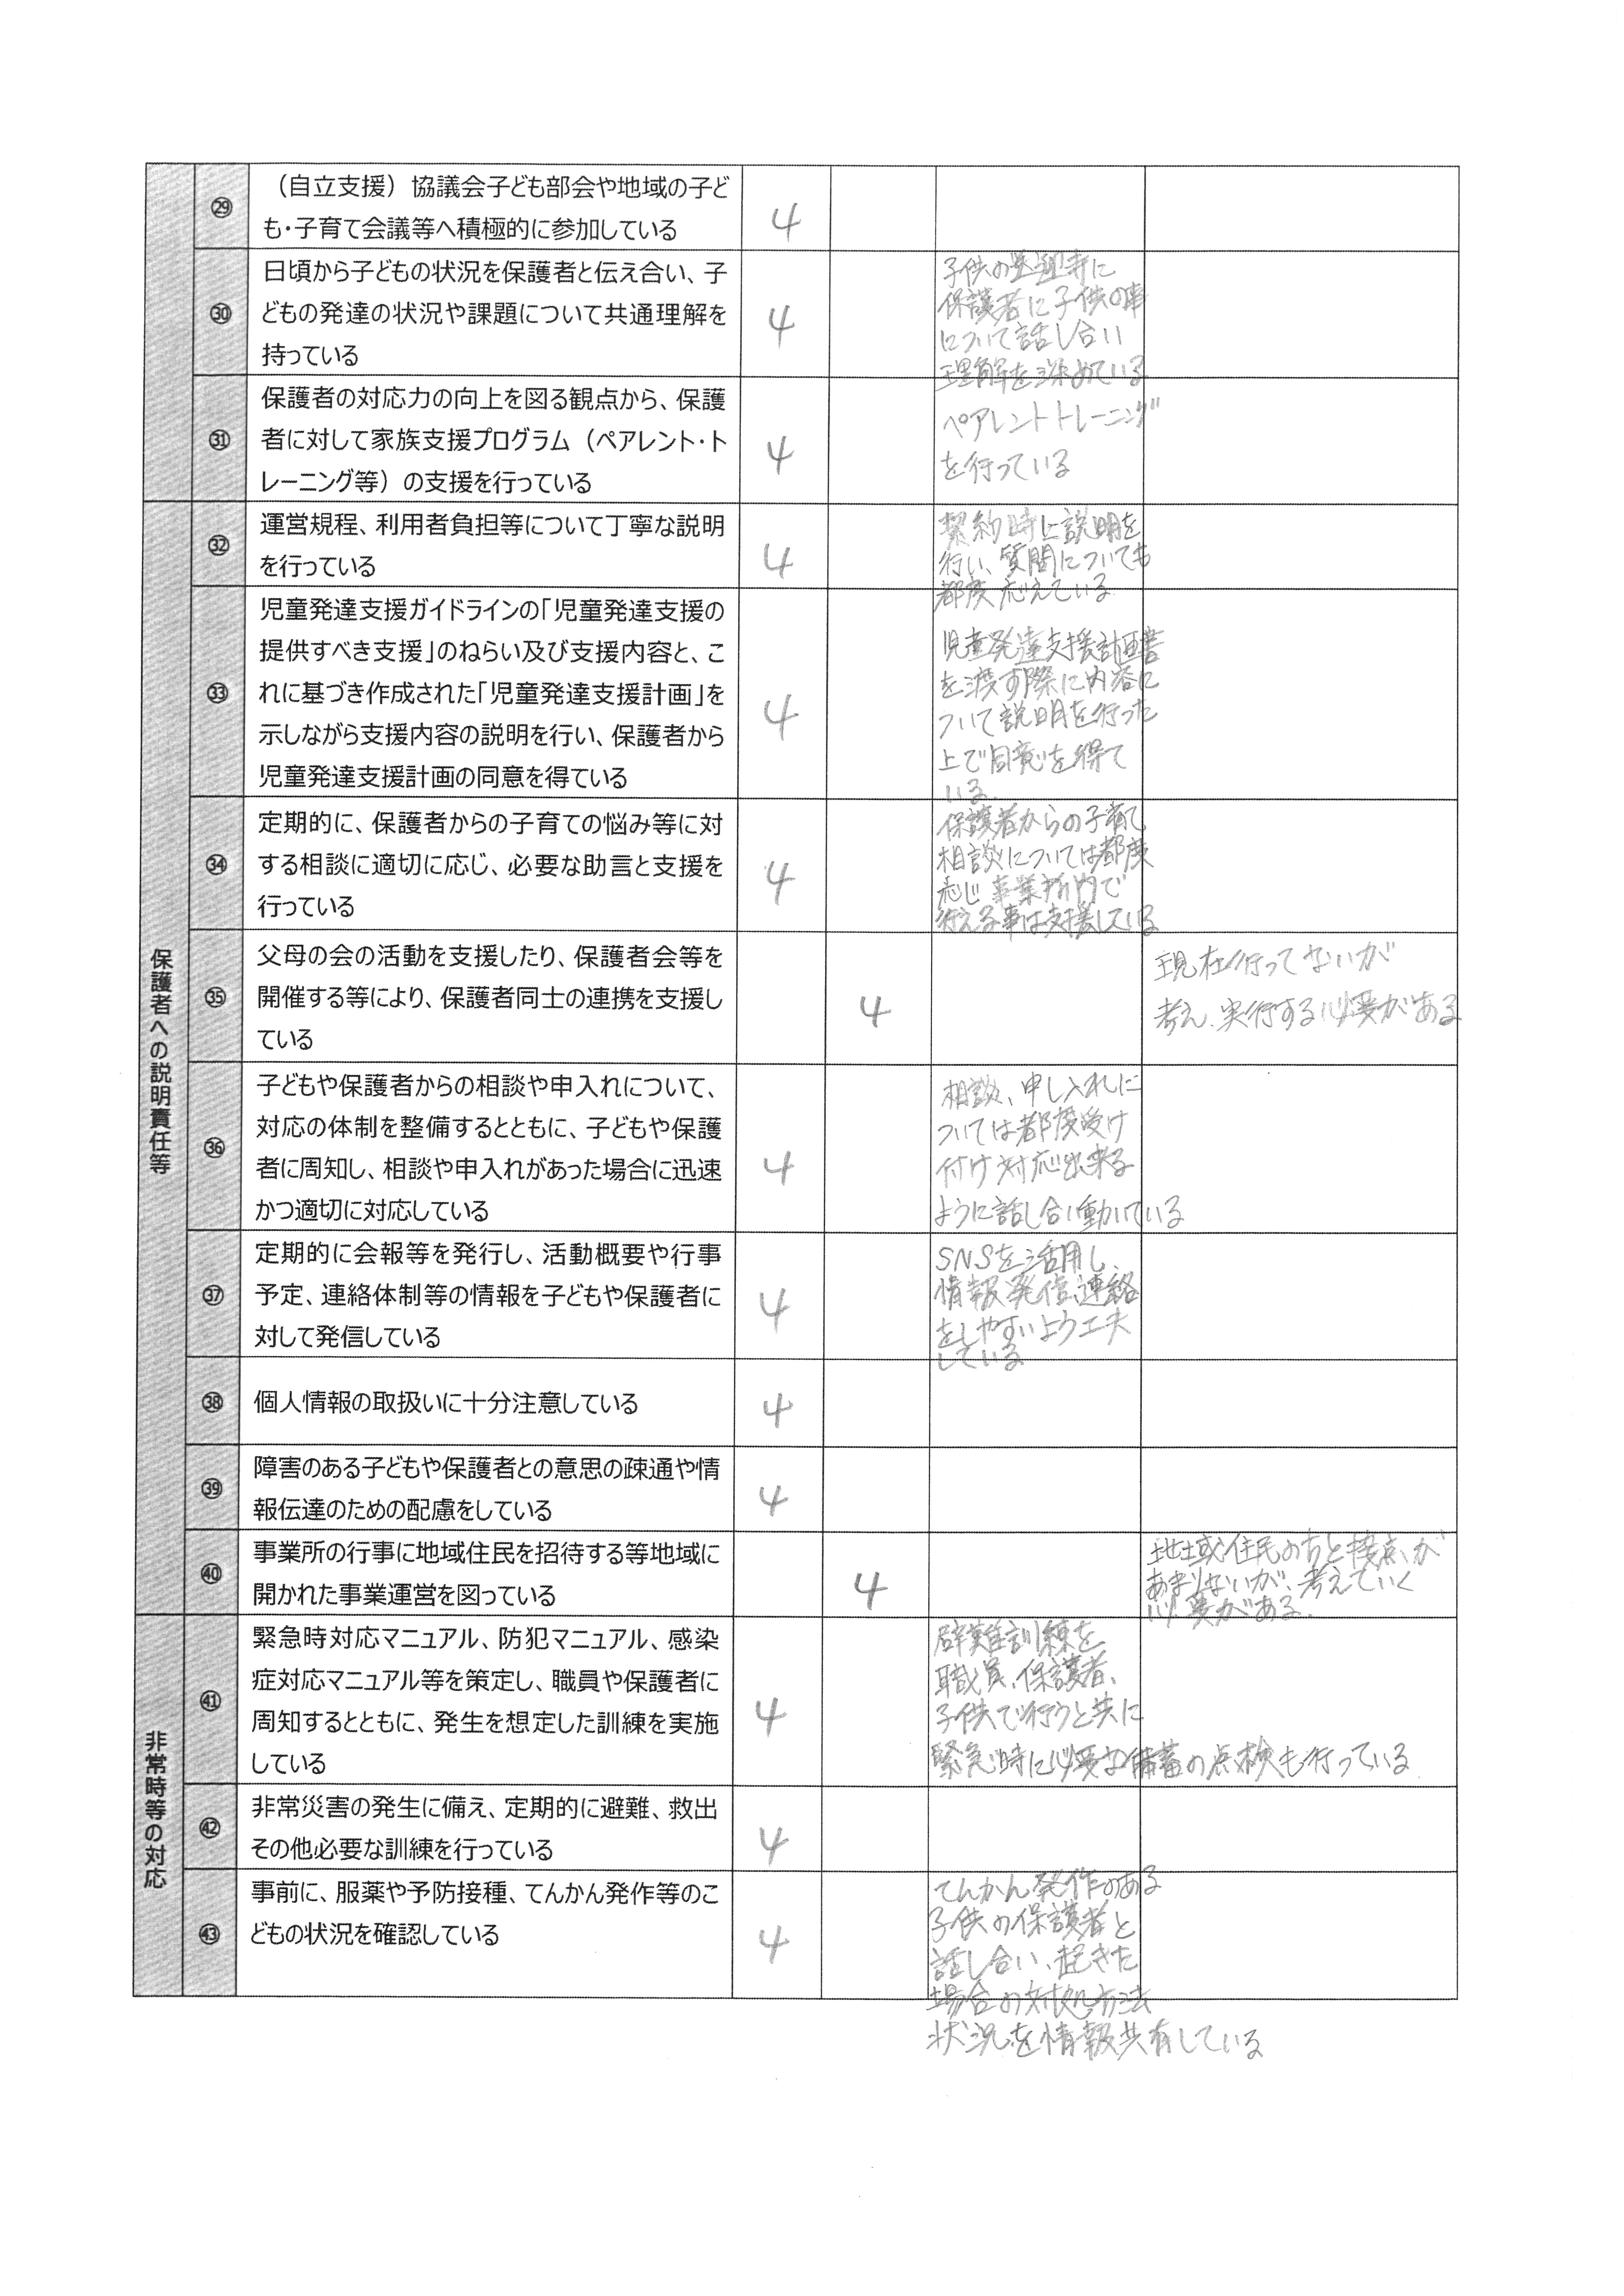 ㉙
（自立支援）協議会子ども部会や地域の子ど
も・子育て会議等へ積極的に参加している
4
㉚
日頃から子どもの状況を保護者と伝え合い、子
どもの発達の状況や課題について共通理解を
持っている
4
子供の送迎時に
保護者に子供の事
について話し合い
理解を深めている
㉛
保護者の対応力の向上を図る観点から、保護
者に対して家族支援プログラム（ペアレント・ト
レーニング等）の支援を行っている
4
ペアレントトレーニング
を行っている
保護者への説明責任等
㉜
運営規程、利用者負担等について丁寧な説明
を行っている
4
契約時に説明を
行い、質問についても
都度応えている
㉝
児童発達支援ガイドラインの「児童発達支援の
提供すべき支援」のねらい及び支援内容と、こ
れに基づき作成された「児童発達支援計画」を
示しながら支援内容の説明を行い、保護者から
児童発達支援計画の同意を得ている
4
児童発達支援計画書
を渡す際に内容に
ついて説明を行った
上で同意を得て
いる.
㉞
定期的に、保護者からの子育ての悩み等に対
する相談に適切に応じ、必要な助言と支援を
行っている
4
保護者からの子育て
相談については都度
応じ事業所内で
行える事は支援している
㉟
父母の会の活動を支援したり、保護者会等を
開催する等により、保護者同士の連携を支援し
ている
4
現在行ってないが
考え、実行する必要がある
㊱
子どもや保護者からの相談や申入れについて、
対応の体制を整備するとともに、子どもや保護
者に周知し、相談や申入れがあった場合に迅速
かつ適切に対応している
4
相談、申し入れに
ついては都度受け
付け対応出来る
ように話し合い動いている
㊲
定期的に会報等を発行し、活動概要や行事
予定、連絡体制等の情報を子どもや保護者に
対して発信している
4
SNSを活用し、
情報発信、連絡
をしやすいよう工夫
している
㊳
個人情報の取扱いに十分注意している
4
㊴
障害のある子どもや保護者との意思の疎通や情
報伝達のための配慮をしている
4
㊵
事業所の行事に地域住民を招待する等地域に
開かれた事業運営を図っている
4
地域住民の方と接点が
あまりないが、考えていく
必要がある.
非常時等の対応
㊶
緊急時対応マニュアル、防犯マニュアル、感染
症対応マニュアル等を策定し、職員や保護者に
周知するとともに、発生を想定した訓練を実施
している
4
避難訓練を
職員、保護者、
子供で行うと共に
緊急時に必要な備蓄の点検も行っている
㊷
非常災害の発生に備え、定期的に避難、救出
その他必要な訓練を行っている
4
㊸
事前に、服薬や予防接種、てんかん発作等のこ
どもの状況を確認している
4
てんかん発作のある
子供の保護者と
話し合い、起きた
場合の対処方法
状況を情報共有している